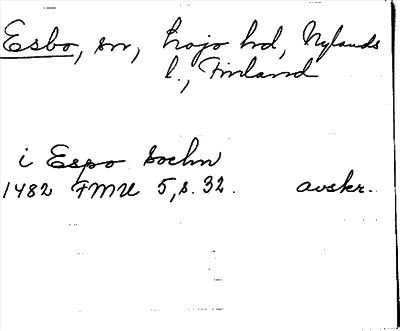 Esbo, sn, Lojo hd, Nylands
l., Finland
i Espo sochn
1482 FMU 5, s. 32. avskr.